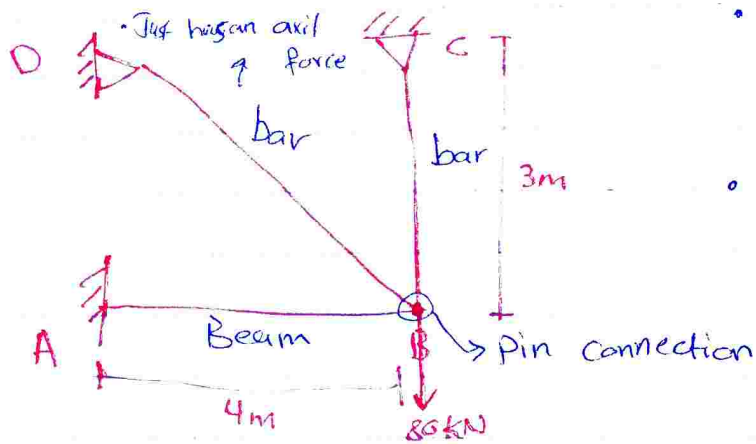 • Just hav an axil
force
D
C
bar
bar
3m
A
Beam
B
Pin connection
4m
80KN